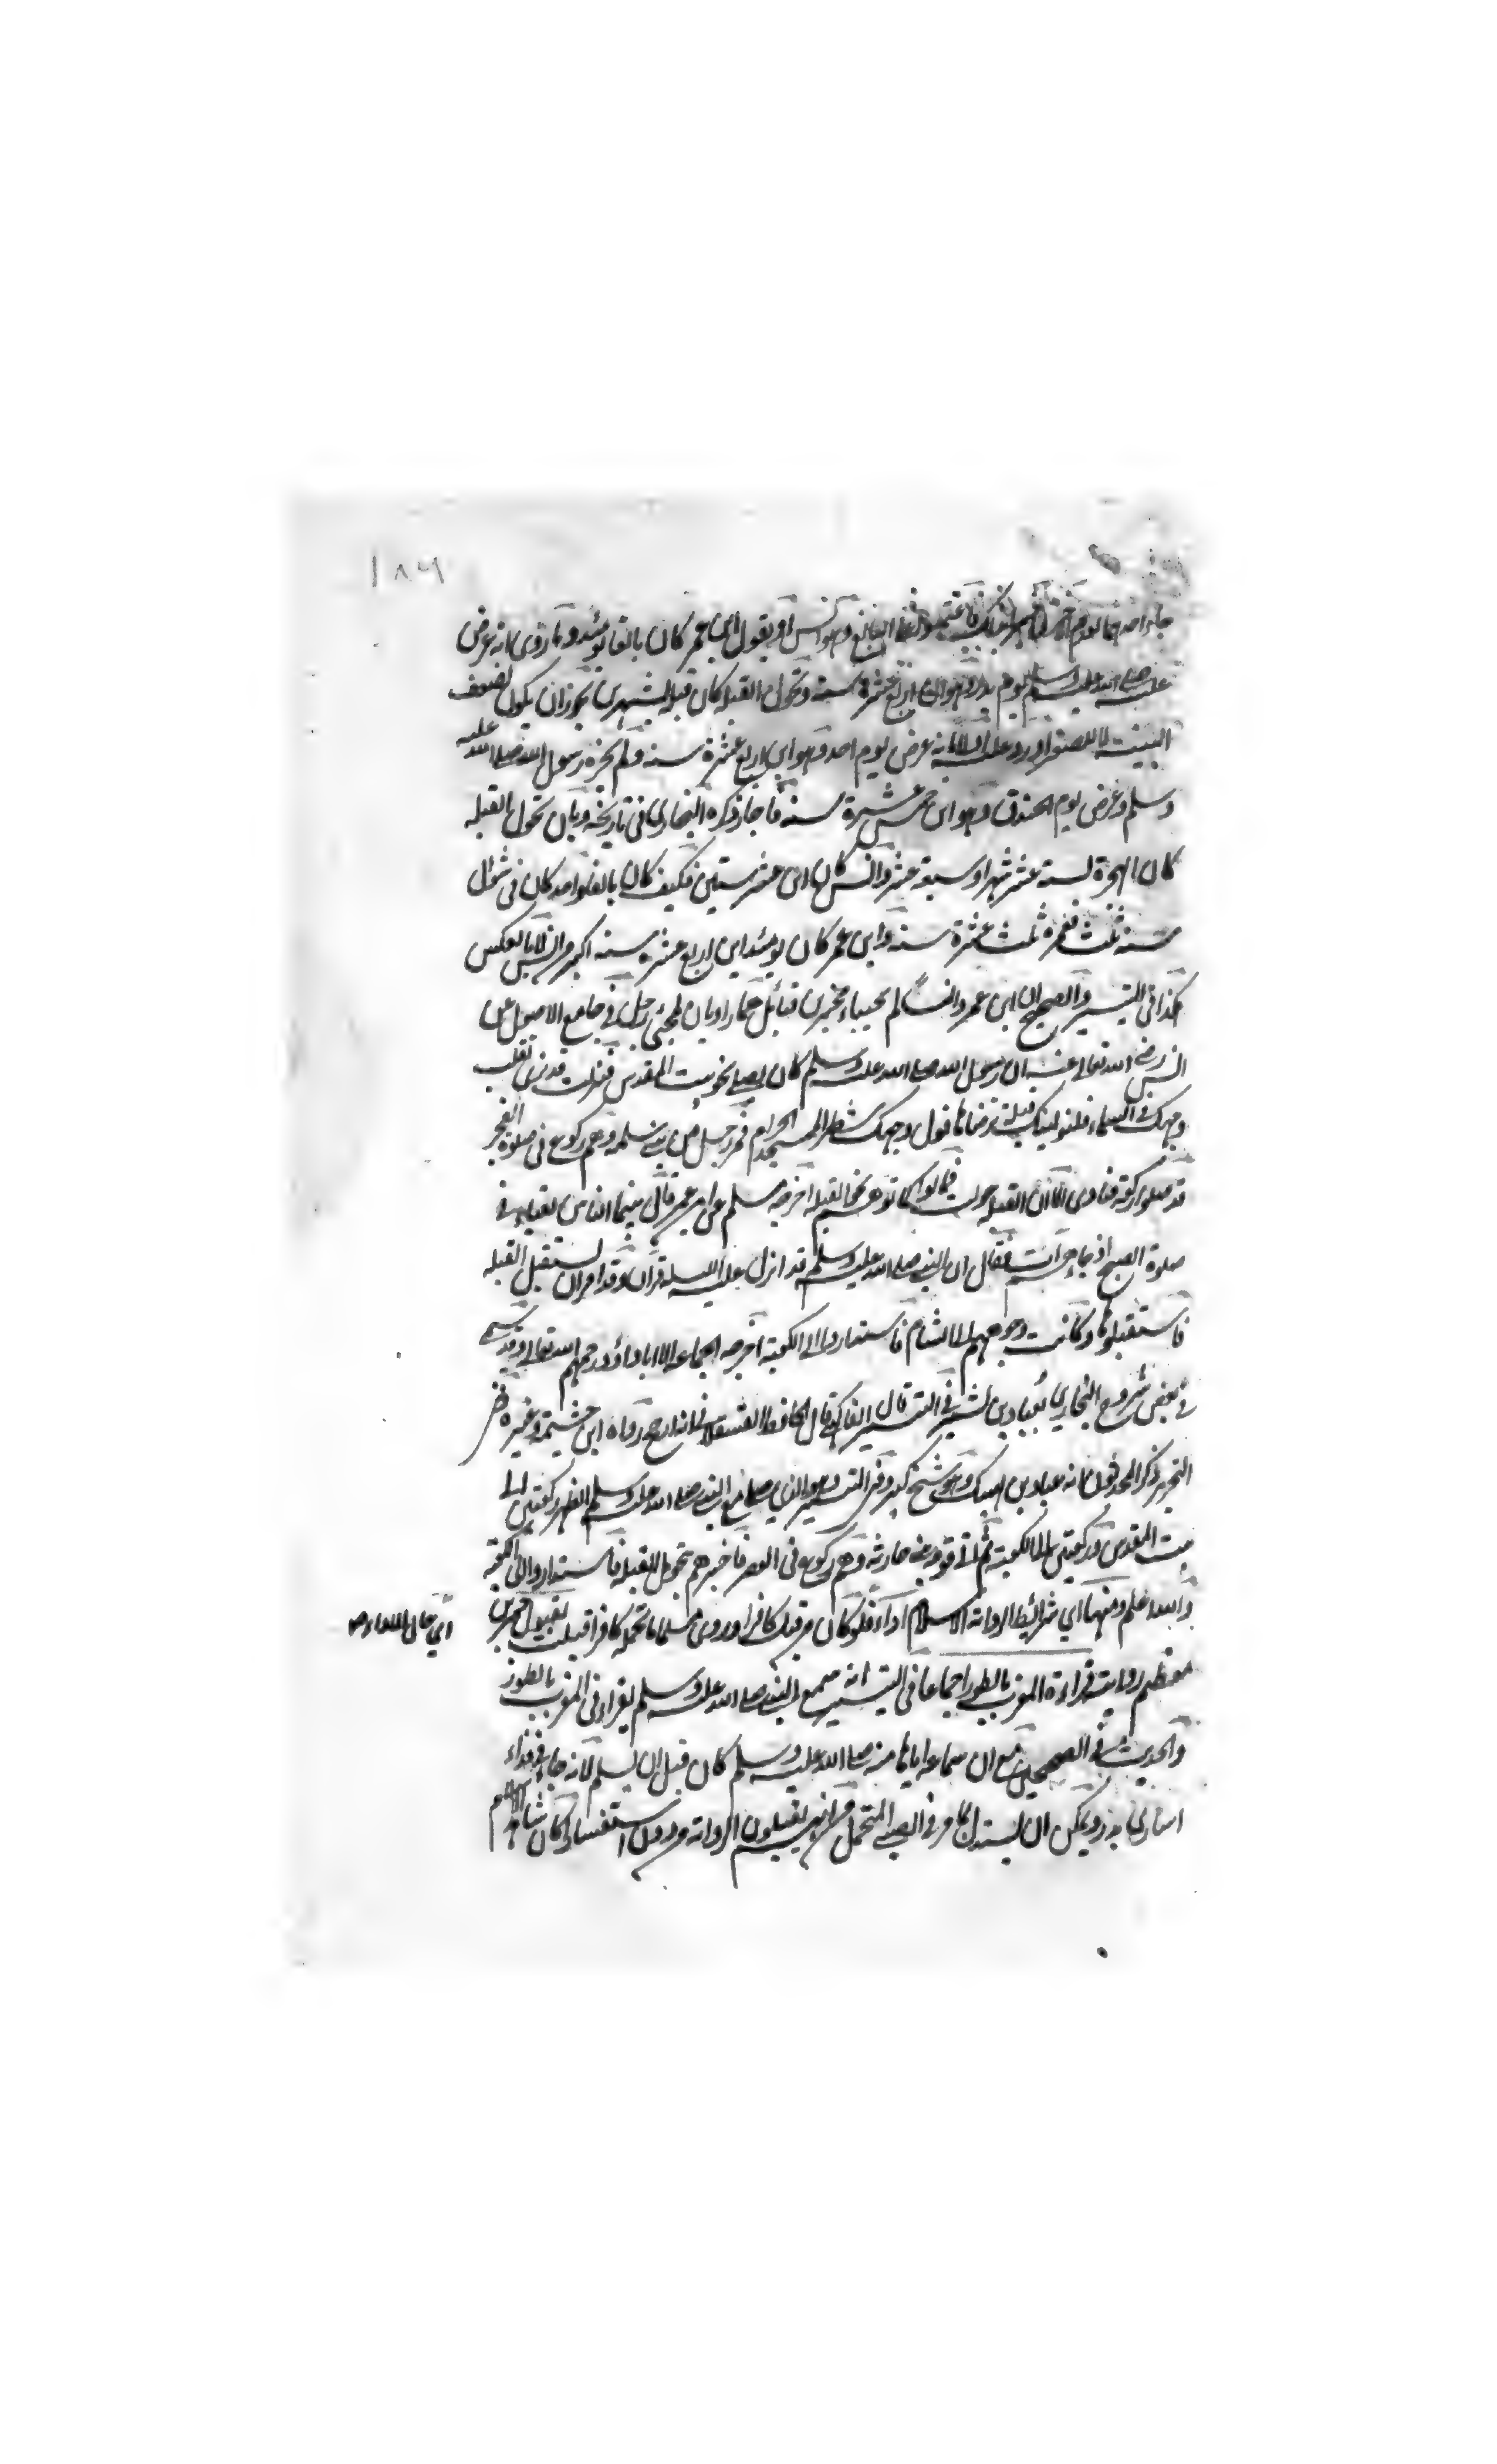 ١٨٦
جاء احدهما يوم والبالغ وهو انس او يقول ابن عمر كان بالغا يومئذ وما روى انه عرض
عليه صلى الله عليه وسلم يوم بدر وهو ابن اربع عشرة سنة وتحول القبلة كان قبله بشهرين يجوز ان يكون لضعف
البنية لا للصغر ورد عليه انه عرض يوم احد وهو ابن اربع عشرة سنة ولم يجزه رسول الله صلى الله عليه
وسلم وعرض يوم الخندق وهو ابن خمس عشرة سنة فاجازه ذكره البخاري في تاريخه وبان تحول القبلة
كان الهجرة لستة عشر شهرا او سبعة عشر وانس كان ابن عشر سنين فكيف كان بالغا واحد كان في شوال
سنة ثلث فعمره ثلث عشرة سنة وابن عمر كان يومئذ ابن اربع عشرة سنة اكبر من انس لا بالعكس
هكذا في التيسير والصحيح ان ابن عمر وانسا لم يجيبا مخبرين قبا بل هما راويان لمجيء رجل في جامع الاصول عن
انس رضي الله تعالى عنه ان رسول الله صلى الله عليه وسلم كان يصلي نحو بيت المقدس فنزلت قد نرى تقلب
وجهك في السماء فلنولينك قبلة ترضاها فول وجهك شطر المسجد الحرام فمر رجل من بني سلمة وهم ركوع في صلوة الفجر
قد صلوا ركعة فنادى الا ان القبلة حولت فمالوا كما هم نحو القبلة اخرجه مسلم عن ابن عمر قال بينما الناس بقباء في
صلوة الصبح اذ جاءهم آت فقال ان النبي صلى الله عليه وسلم قد انزل عليه الليلة قرآن وقد امر ان يستقبل القبلة
فاستقبلوها وكانت وجوههم الى الشام فاستداروا الى الكعبة اخرجه الجماعة الا ابا داؤد رحمهم الله تعالى وقد سمي
في بعض شروح البخاري بعباد بن بشير في التيسير قال الفاكهي قال الحافظ العسقلاني انه ارجح رواه ابن خيثمة وغيره
التحرير ذكر المحدثون انه عباد بن نهيك وهو شيخ كبير وفي التيسير وهو الذي صلى مع النبي صلى الله عليه وسلم الظهر ركعتين الى
بيت المقدس وركعتين الى الكعبة ثم اتى قومه بني حارثة وهم ركوع في العصر فاخبرهم بتحويل القبلة فاستداروا الى الكعبة
والله اعلم ومنها اي شرائط الرواية الاسلام اداء فلو كان من قبل كافرا وروى مسلما ما تحمله كافرا قبلت لقبول جبير بن
مطعم رواية قراءة المغرب بالطور اجماعا في التيسير انه سمع النبي صلى الله عليه وسلم يقراء في المغرب بالطور
والحديث في الصحيحين مع ان سماعه اياها منه صلى الله عليه وسلم كان قبل ان يسلم لانه جاء في فداء
اسارى بدر ويمكن ان يستدل بما مر في الصبي المتحمل من انهم يقبلون الرواية من دون استفسار كان
اي حال الاداء